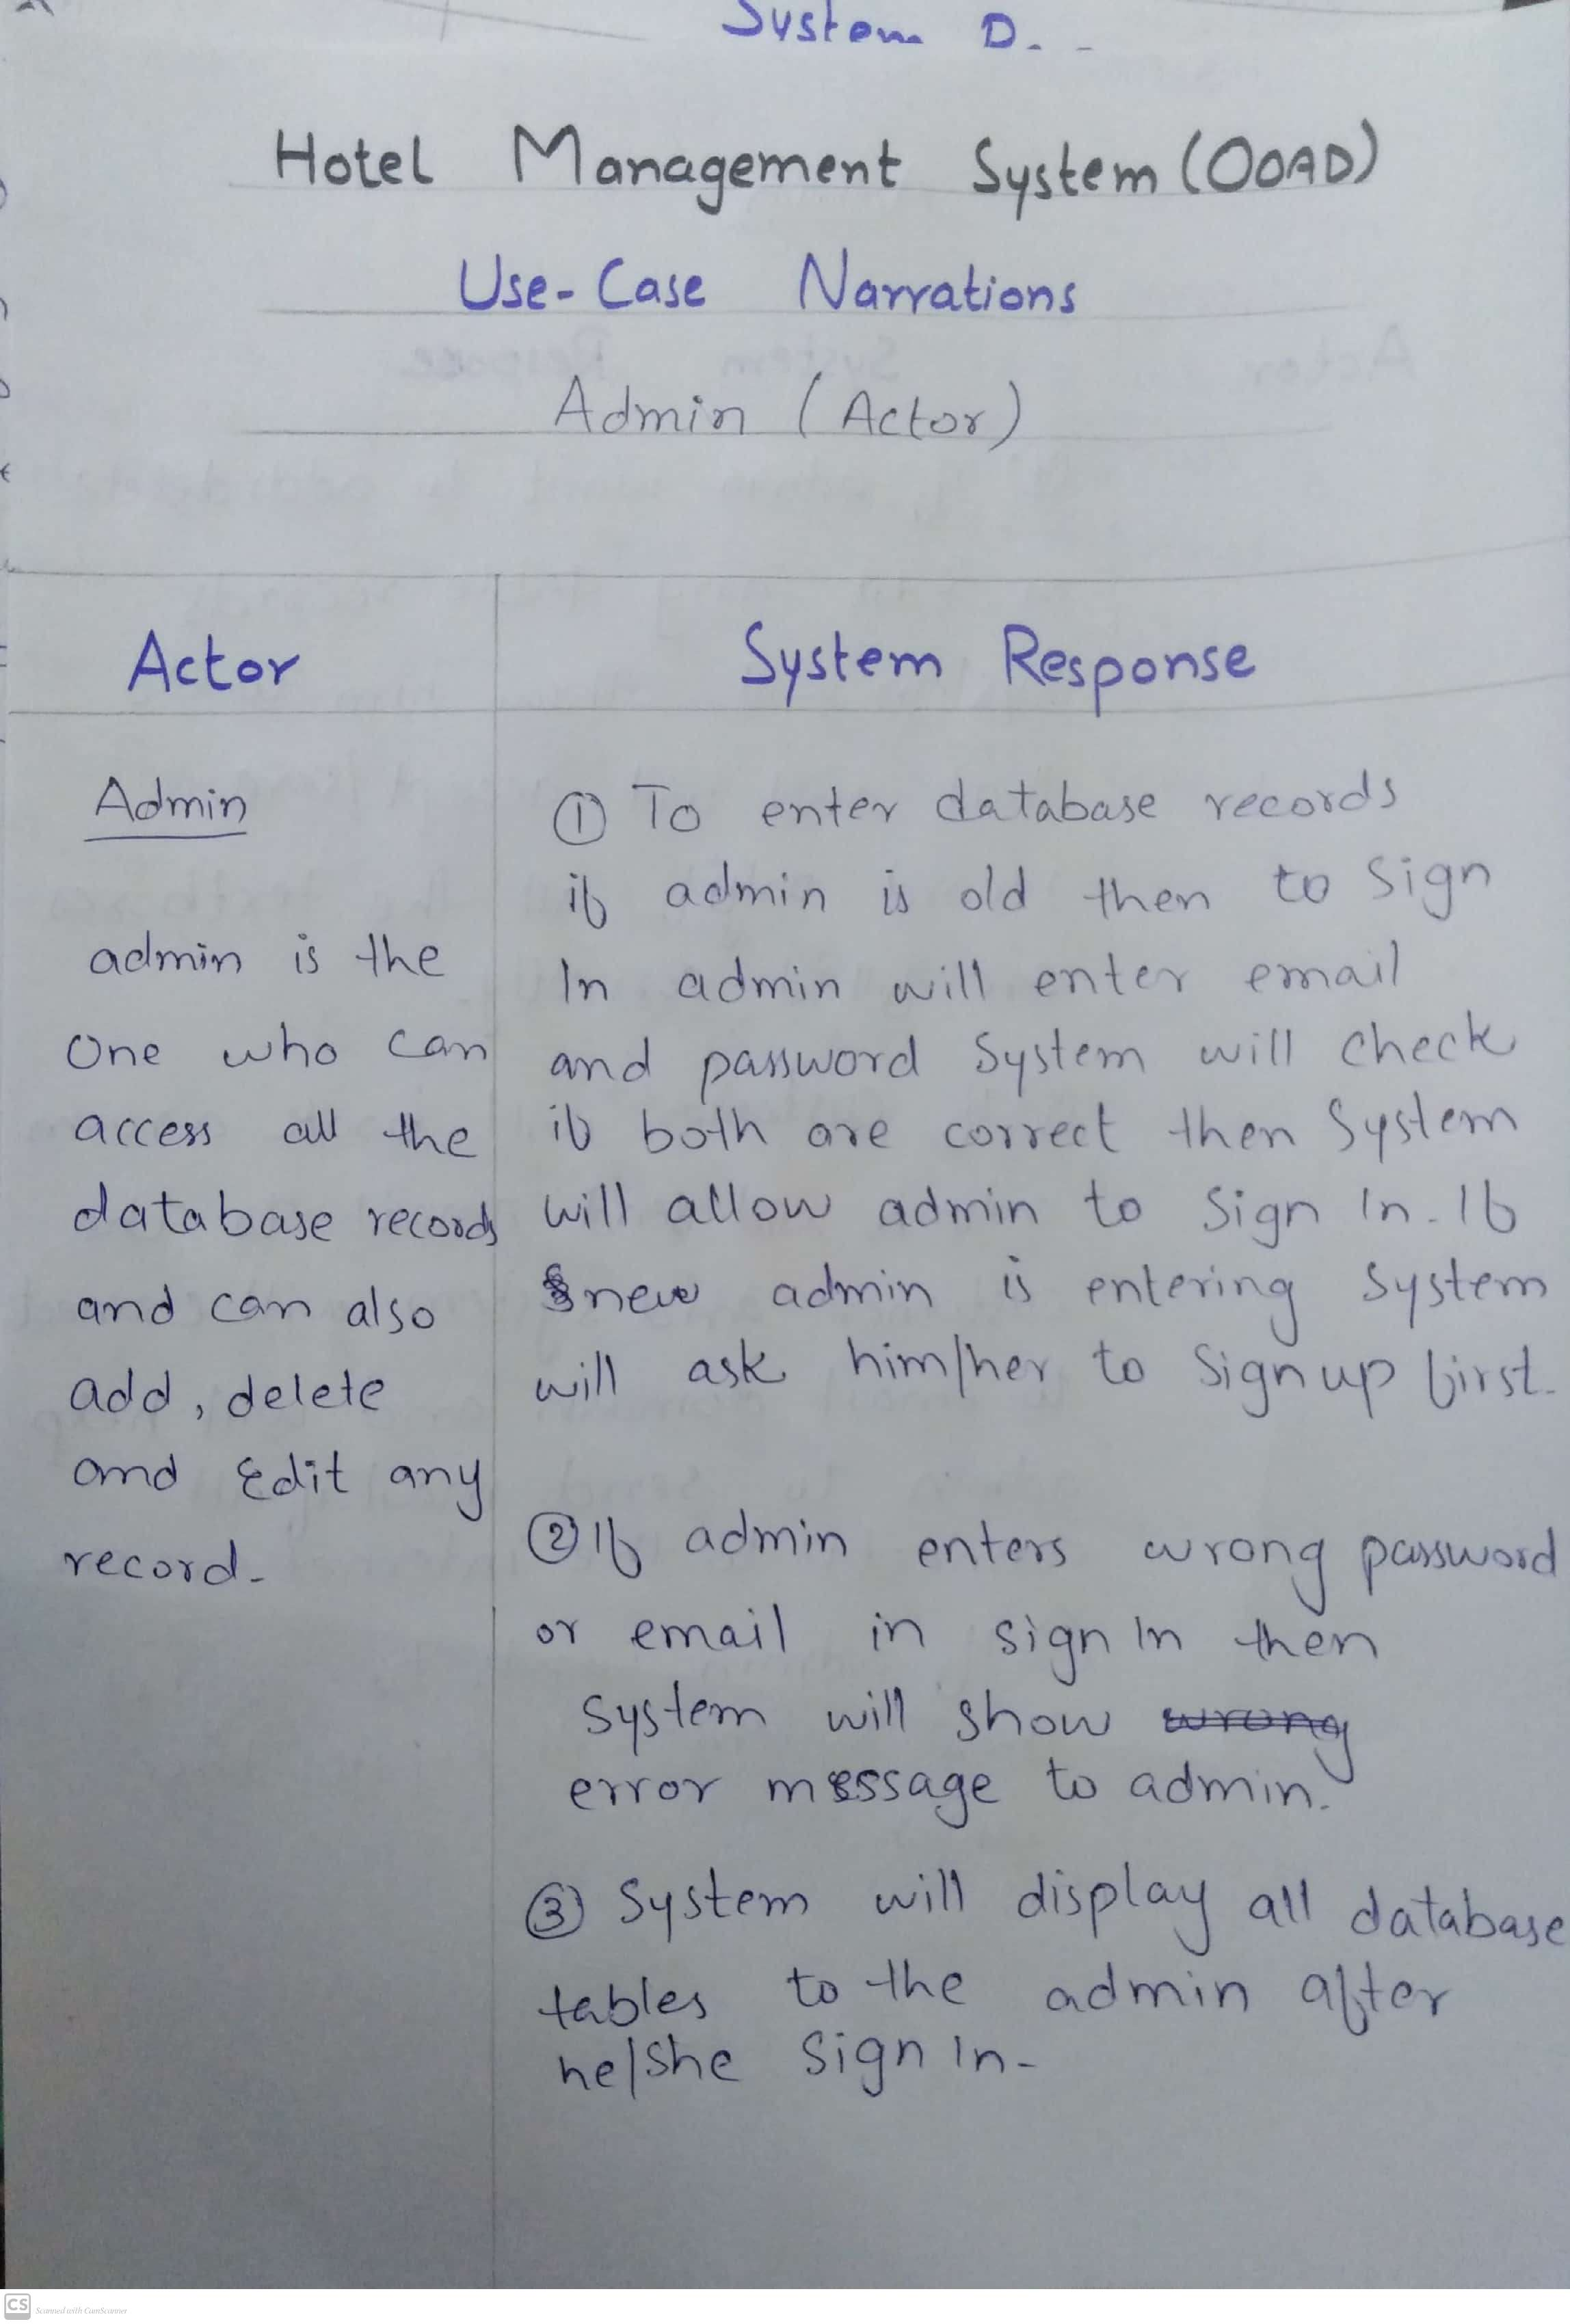 System D.
Hotel Management System (OOAD)
Use-Case Narrations
Admin (Actor)
Actor
System Response
Admin
admin is the
One who can
access all the
database records
and can also
add, delete
and Edit any
record.
① To enter database records
if admin is old then to Sign
In admin will enter email
and password System will check
if both are correct then System
will allow admin to Sign In. If
new admin is entering System
will ask him/her to Sign up first.
② If admin enters wrong password
or email in sign In then
System will show wrong
error message to admin.
③ System will display all database
tables to the admin after
he/she Sign In.
CS Scanned with CamScanner